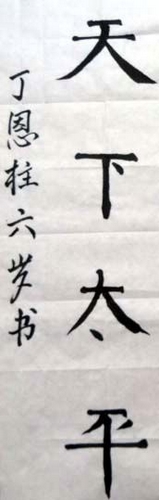 天下太平
丁恩柱六岁书